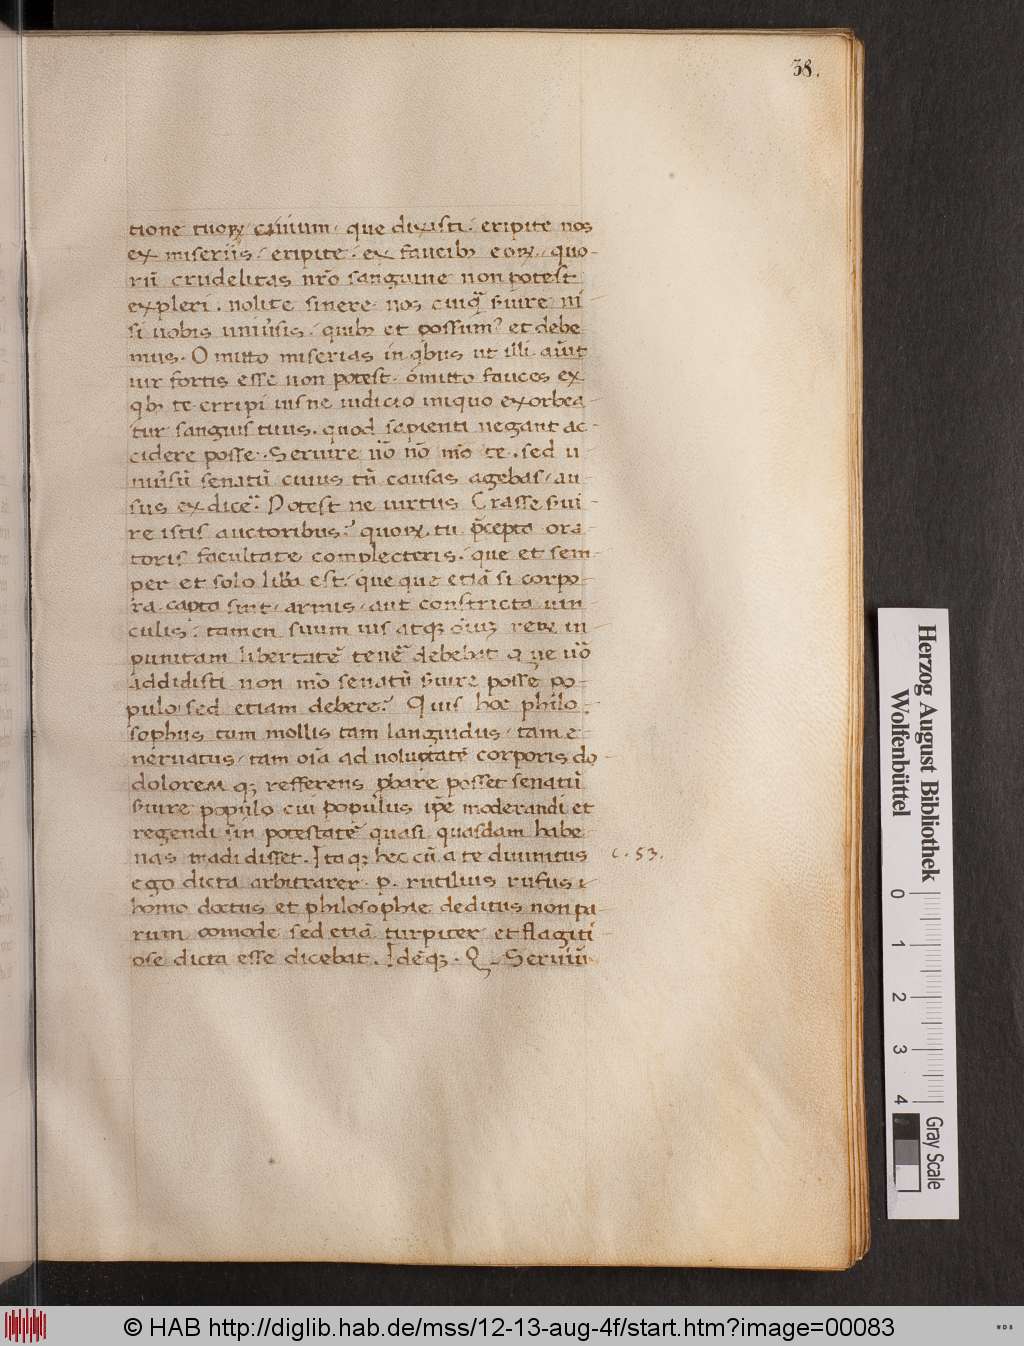 38.
tione tuoꝝ ciuium. que dixisti. eripite nos
ex miseriis. eripite. ex faucibꝫ eoꝝ. quo-
rū crudelitas nr̄o sanguine non potest
expleri. nolite sinere nos cuiq̄ ẜuire ni
si uobis uniu̾sis. quibꝫ et possum᾿ et debe
mus. O mitto miserias in qͥbus ut illi aiūt
uir fortis esse non potest. omitto fauces ex
qͥbꝫ te erripi uis ne iudicio iniquo exorbea-
tur sanguis tuus. quod sapienti negant ac-
cidere posse. Seruire u̅o no̅ mo̅ te. sed u-
niu̾sū senatū cuius tū causas agebas. au-
sus ex dice̅. Potest ne uirtus Crasse ẜui-
re istis auctoribus? quoꝝ tu p̄cepta ora-
toris facultate complecteris. que et sem-
per et solo lib̅a est. que que etiā si corpo-
ra capta sint. armis. aut constricta uin-
culis. tamen suum ius atqꝫ oīuꝫ reꝝ in-
punitam libertatē tenē debebat q ue u̅o
addidisti non mō senatū ẜuire posse po-
pulo sed etiam debere? Quis hoc philo-
sophus tam mollis tam languidus. tam e-
neruatus. tam oīa ad uoluptatē corporis do-
doloremqꝫ refferens ꝓbare posset senatū
ẜuire populo cui populus ip̄e moderandi et
regendi sūi potestatē quasi quasdam habe
nas tradidisset. Itaqꝫ hec cū a te diuinitus
c. 53.
ego dicta arbitrarer. p. rutilius rufus
homo doctus et philosophie deditus non pa
rum comode sed etiā turpiter et flagiti-
ose dicta esse dicebat. Idēqꝫ. Q. Seruiū
Herzog August Bibliothek
Wolfenbüttel
0 1 2 3 4
Gray Scale
© HAB http://diglib.hab.de/mss/12-13-aug-4f/start.htm?image=00083